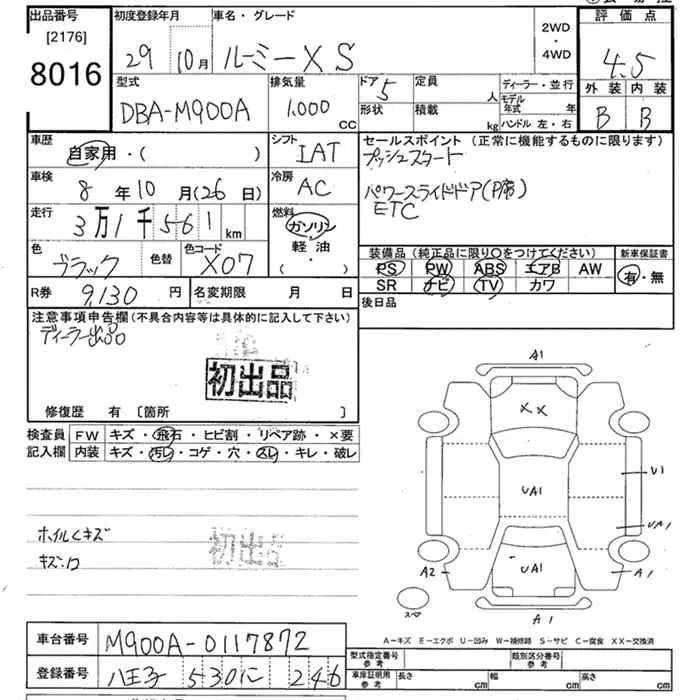 出品番号 初度登録年月 車名・グレード 2WD・4WD 評価点
[2176] 8016 29 10月 ルーミーXS 4.5
型式 排気量 ドア 定員 ディーラー・並行 外装 内装
DBA-M900A 1,000 CC 5 人 形状 積載 kg モデル年式 年 ハンドル 左・右 B B
車歴 シフト セールスポイント (正常に機能するものに限ります)
自家用・( ) IAT プッシュスタート
車検 冷房
8年10月(26日) AC パワースライドドア(P席)
走行 燃料 ETC
3万1千561km ガソリン
軽油・( )
色 色替 色コード 装備品 (純正品に限り○をつけてください) 新車保証書
ブラック X07 PS PW ABS エアB AW 有・無
SR ナビ TV カワ
R券 9,130円 名変期限 月 日 後日品
注意事項申告欄(不具合内容等は具体的に記入して下さい)
ディーラー出品
初出品
修復歴 有 [箇所 ]
検査員 FW キズ・飛石・ヒビ割・リペア跡・×要
記入欄 内装 キズ・汚レ・コゲ・穴・スレ・キレ・破レ
ホイルキズ
キズ・凹
初出品
A1
XX
UA1
U1
UA1
UA1
A2
A1
スペア
A1
A−キズ E−エクボ U−凹み W−補修跡 S−サビ C−腐食 XX−交換済
車台番号 M900A-0117872
登録番号 八王子 530 に 246
型式指定番号 参考 類別区分番号 参考
車庫証明用 参考 長さ cm 幅 cm 高さ cm